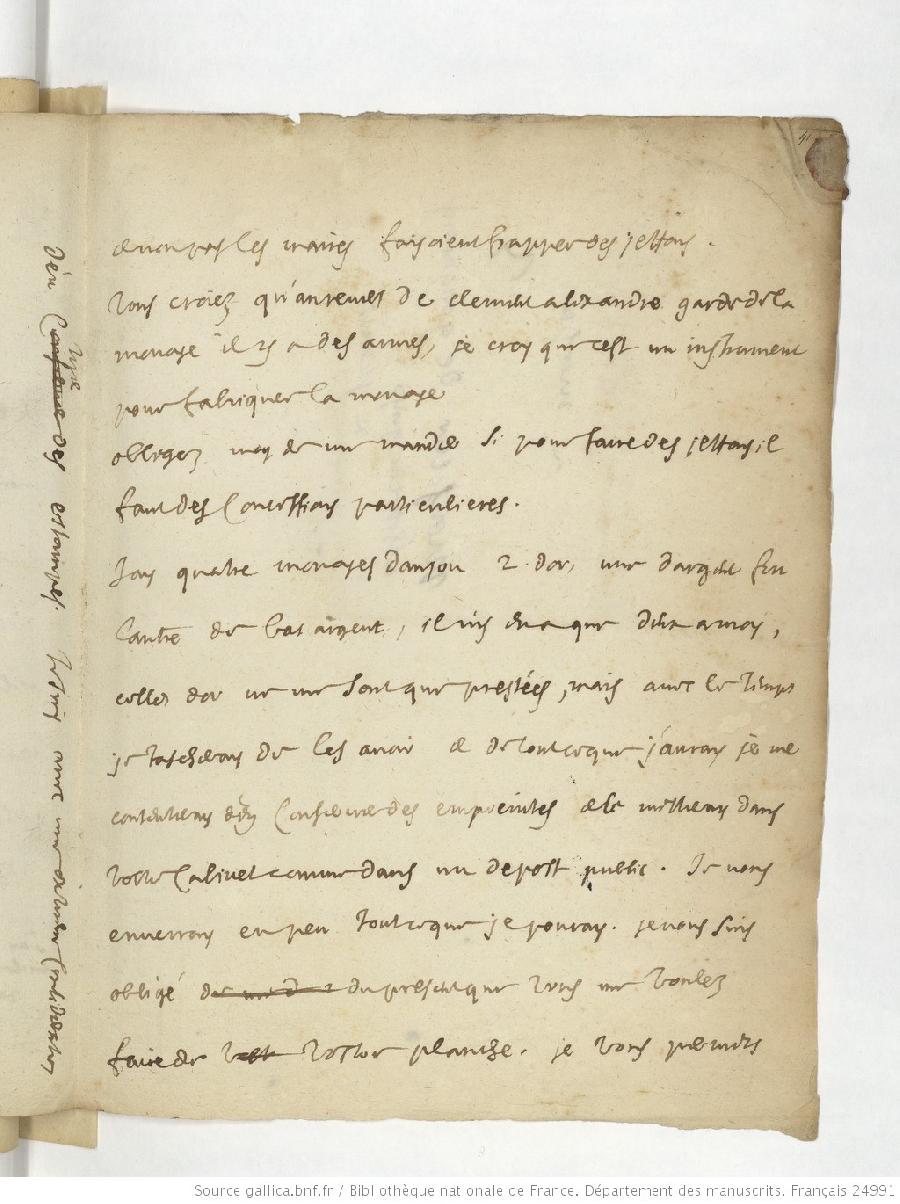 41
les maires faisoient frapper des jettons.
Vous croiez qu'au revers de clement alixandre garde de la
monoye il y a des armes, je croy que c'est un instrument
pour fabriquer la monoye
obligez moy de me mander si pour faire des jettons il
faut des Concessions particulieres.
Jay quatre monoyes danjou 2. dor, une dargent fin
lautre de bas argent, il nis en a que deux a moy,
celles dor ne me sont que prestées, mais avec le temps
je tascheray de les avoir & de tout ce que j'auray je me
contenteray den Conserver des empreintes & le mettray dans
vostre Cabinet comme dans un depost public. Je vous
enverray en peu tout ce que je pouray. je vous suis
obligé du present que vous me voulez
faire de vostre planche. je vous
des estampes
Source gallica.bnf.fr / Bibliothèque nationale de France. Département des manuscrits. Français 24991